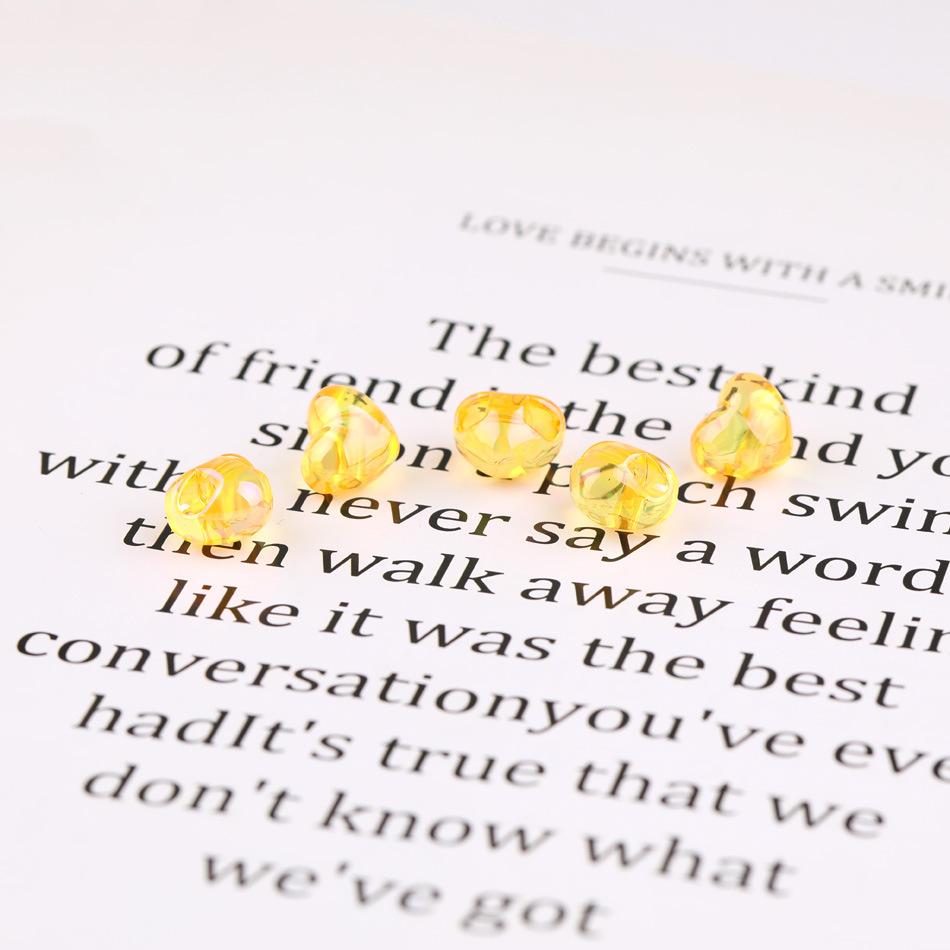 LOVE BEGINS WITH A SMI
The best kind
of friend is the kind yo
on a porch swin
with never say a word
then walk away feelin
like it was the best
conversationyou've eve
hadIt's true that we
don't know what
we've got